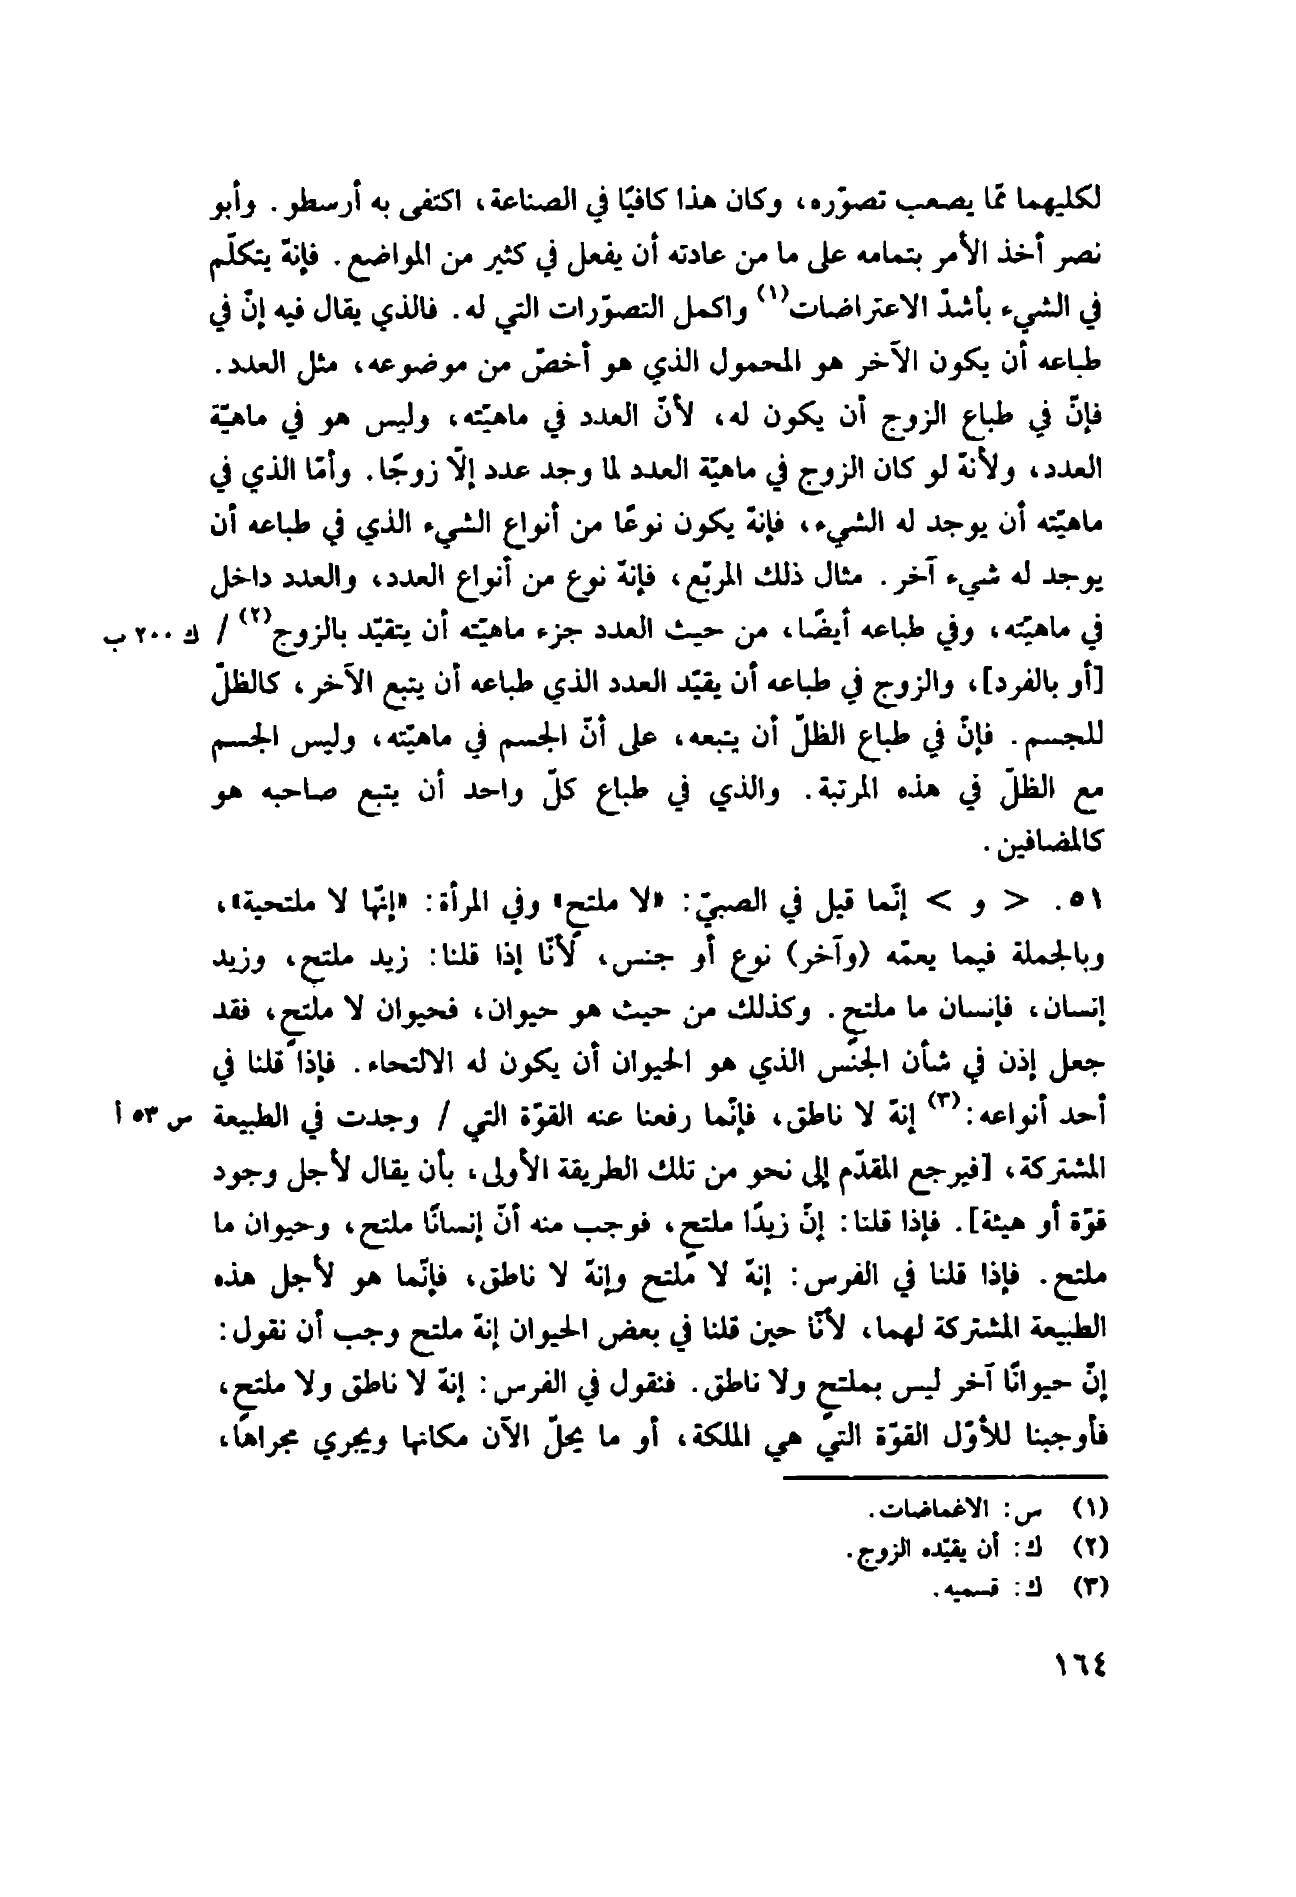 لكليهما ممّا يصعب تصوّره، وكان هذا كافيًا في الصناعة، اكتفى به أرسطو. وأبو
نصر أخذ الأمر بتمامه على ما من عادته أن يفعل في كثير من المواضع. فإنه يتكلّم
في الشيء بأشدّ الاعتراضات(١) واكمل التصوّرات التي له. فالذي يقال فيه إنّ في
طباعه أن يكون الآخر هو المحمول الذي هو أخصّ من موضوعه، مثل العدد.
فإنّ في طباع الزوج أن يكون له، لأنّ العدد في ماهيّته، وليس هو في ماهيّة
العدد، ولأنه لو كان الزوج في ماهيّة العدد لما وجد عدد إلّا زوجًا. وأمّا الذي في
ماهيّته أن يوجد له الشيء، فإنه يكون نوعًا من أنواع الشيء الذي في طباعه أن
يوجد له شيء آخر. مثال ذلك المربّع، فإنه نوع من أنواع العدد، والعدد داخل
في ماهيّته، وفي طباعه أيضًا، من حيث العدد جزء ماهيّته أن يتقيّد بالزوج(٢) / ك ٢٠٠ ب
[أو بالفرد]، والزوج في طباعه أن يقيّد العدد الذي طباعه أن يتبع الآخر، كالظلّ
للجسم. فإنّ في طباع الظلّ أن يتبعه، على أنّ الجسم في ماهيّته، وليس الجسم
مع الظلّ في هذه المرتبة. والذي في طباع كلّ واحد أن يتبع صاحبه هو
كالمضافين.
٥١. < و > إنّما قيل في الصبيّ: «لا ملتحٍ» وفي المرأة: «إنّها لا ملتحية»،
وبالجملة فيما يعمّه (وآخر) نوع أو جنس، لأنّا إذا قلنا: زيد ملتحٍ، وزيد
إنسان، فإنسان ما ملتحٍ. وكذلك من حيث هو حيوان، فحيوان لا ملتحٍ، فقد
جعل إذن في شأن الجنس الذي هو الحيوان أن يكون له الالتحاء. فإذا قلنا في
أحد أنواعه:(٣) إنه لا ناطق، فإنّما رفعنا عنه القوّة التي / وجدت في الطبيعة س ٥٣ أ
المشتركة، [فيرجع المقدّم إلى نحو من تلك الطريقة الأولى، بأن يقال لأجل وجود
قوّة أو هيئة]. فإذا قلنا: إنّ زيدًا ملتحٍ، فوجب منه أنّ إنسانًا ملتحٍ، وحيوان ما
ملتحٍ. فإذا قلنا في الفرس: إنه لا ملتحٍ وإنه لا ناطق، فإنّما هو لأجل هذه
الطبيعة المشتركة لهما، لأنّا حين قلنا في بعض الحيوان إنه ملتحٍ وجب أن نقول:
إنّ حيوانًا آخر ليس بملتحٍ ولا ناطق. فنقول في الفرس: إنه لا ناطق ولا ملتحٍ،
فأوجبنا للأوّل القوّة التي هي الملكة، أو ما يحلّ الآن مكانها ويجري مجراها،
(١) س: الاغماضات.
(٢) ك: أن يقيّده الزوج.
(٣) ك: قسميه.
١٦٤